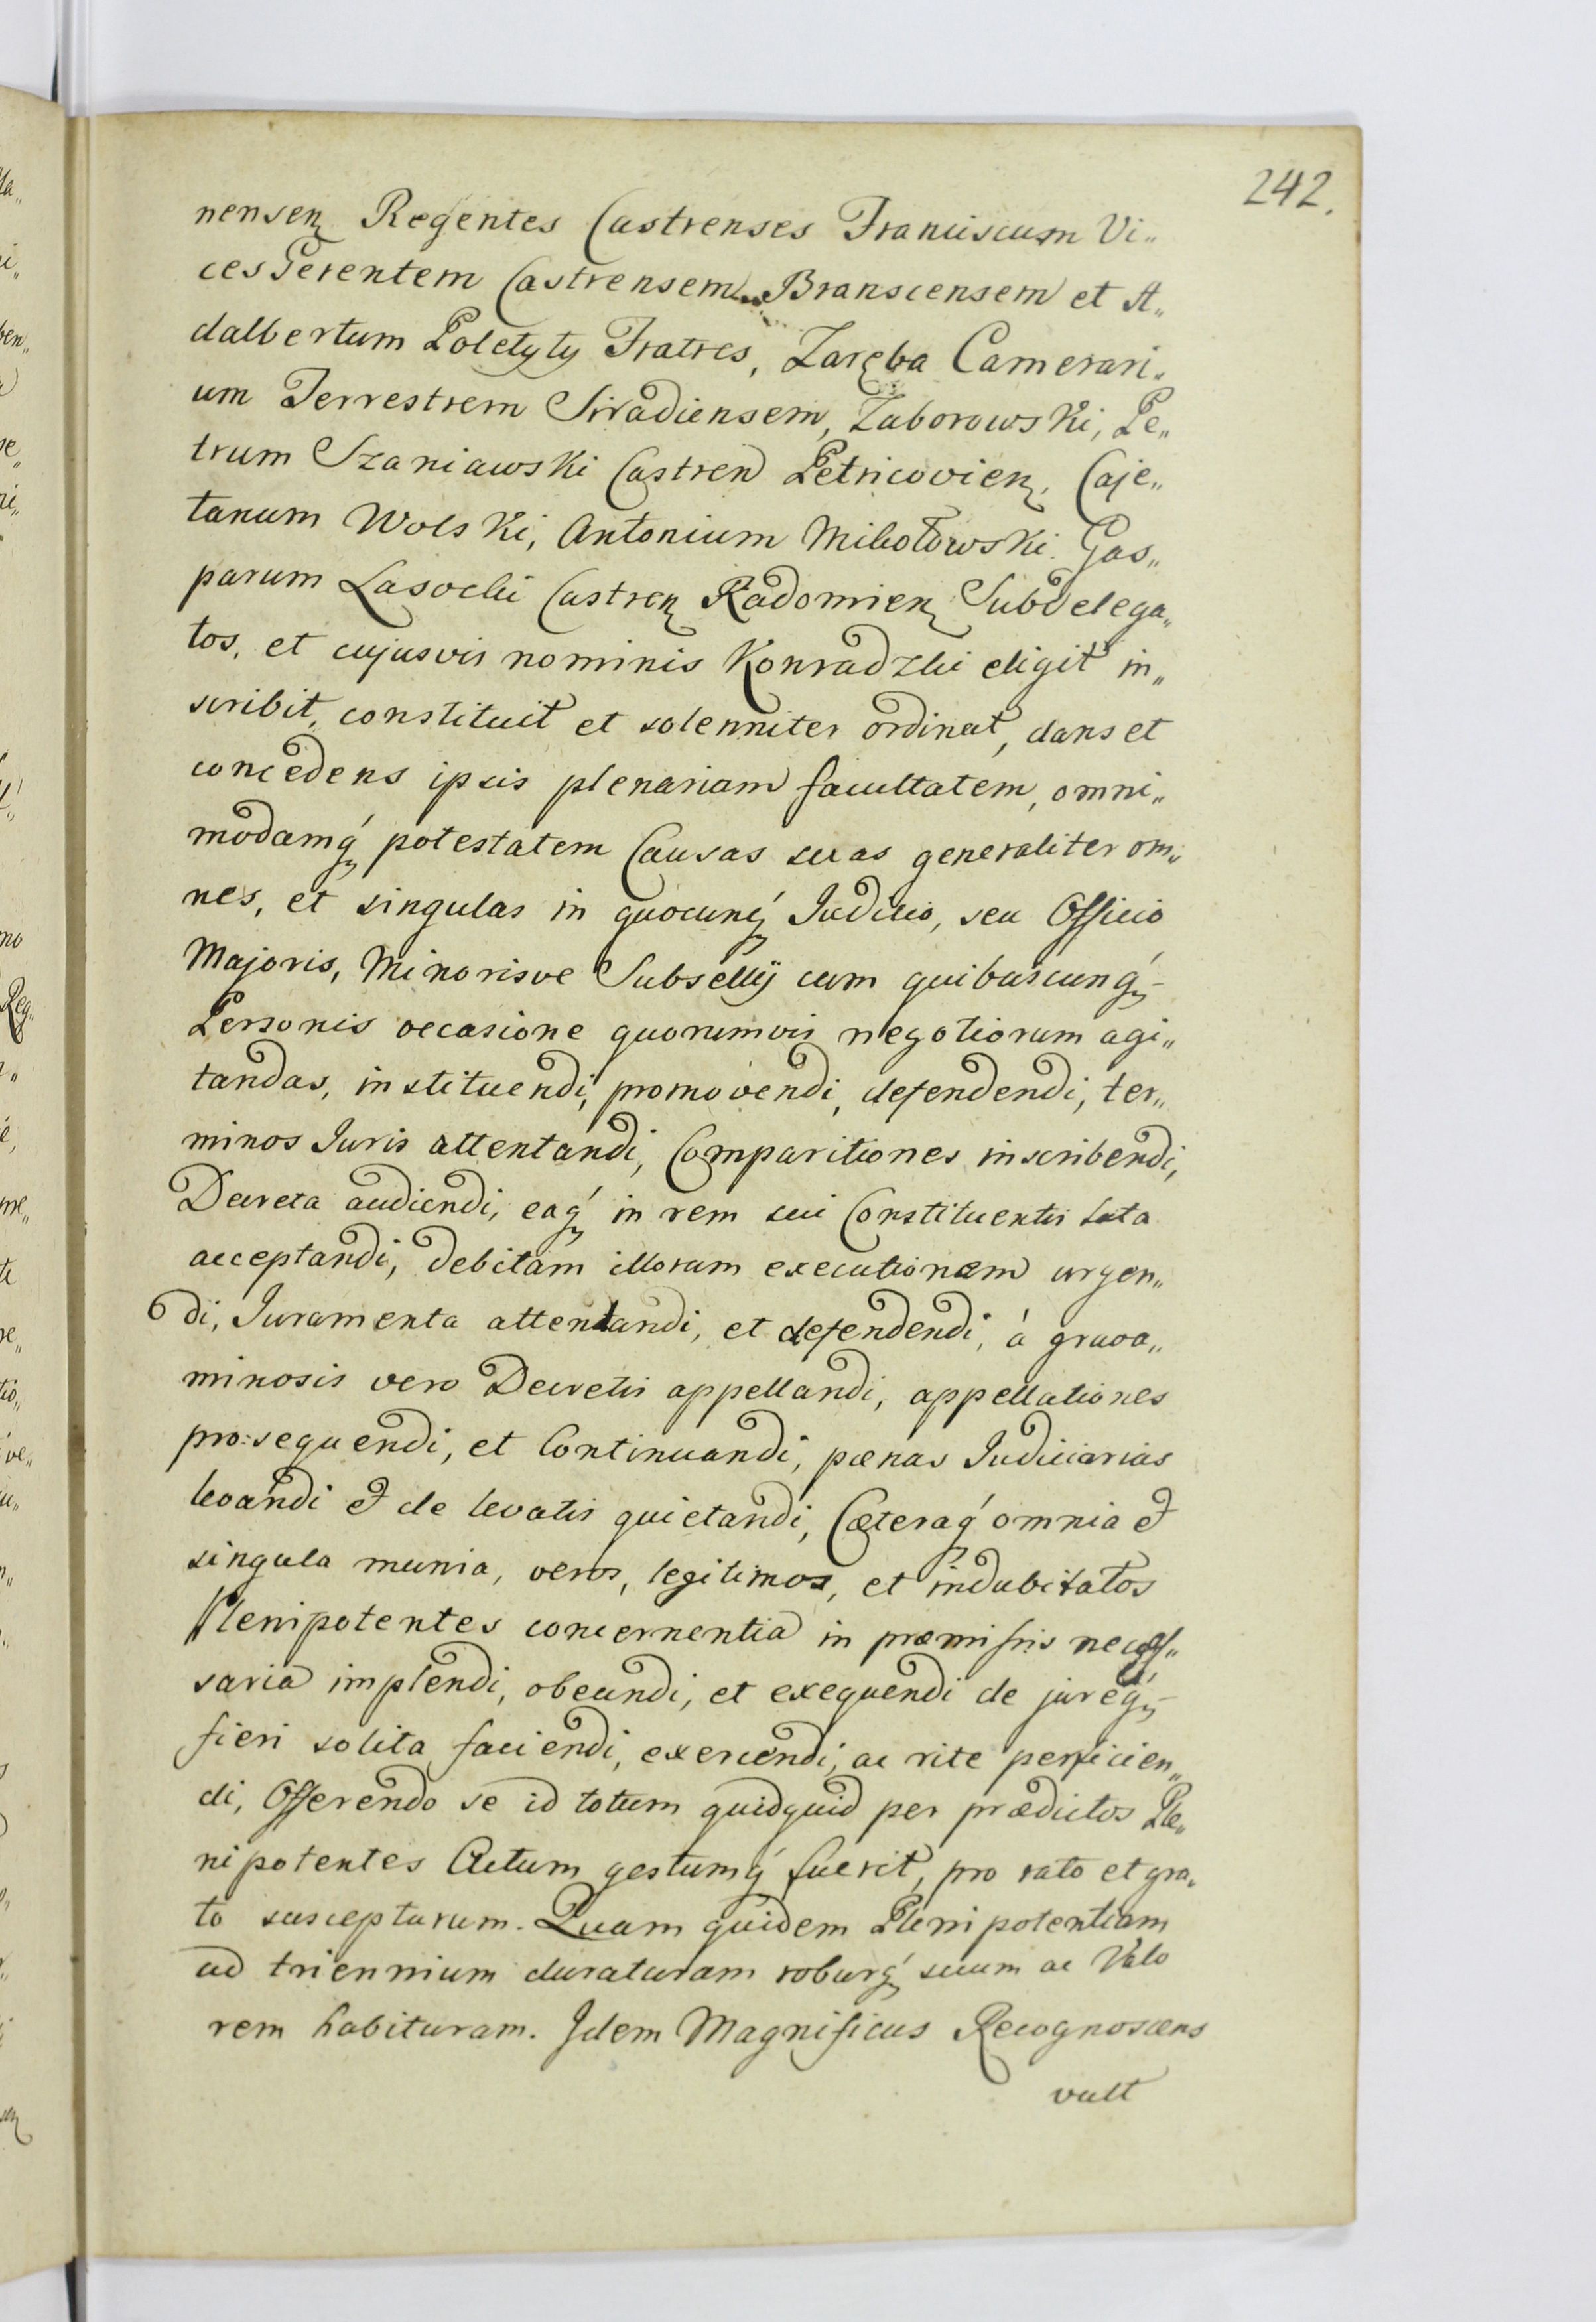 242.
nensen Regentes Castrenses Franciscum Vi„
cesGerentem Castrensem Branscensem et A„
dalbertum Poletyły Fratres, Zaręba Camerari„
um Terrestrem Siradiensem, Zaborowski, Pe„
trum Szaniawski Castren Petricovien, Caje„
tanum Wolski, Antonium Miłotowski Gas„
parum Lasocki Castren Radomien Subdelega„
tos, et cujusvis nominis Konradzki eligit in„
scribit, constituit et solenniter ordinat, dans et
concedens ipsis plenariam facultatem, omni„
modamq́ potestatem Causas suas generaliter om„
nes, et singulas in quocunq́ Judicio, seu Officio
Majoris, Minorisve Subsellij cum quibuscunq́
Personis occasione quorumvis negotiorum agi„
tandas, instituendi, promovendi, defendendi, ter„
minos Juris attentandi, Comparitiones inscribendi,
Decreta audiendi, eaq́ in rem sui Constituentis lata
acceptandi, debitam illorum executionem urgen„
di, Juramenta attentandi, et defendendi, á grava„
minosis vero Decretis appellandi, appellationes
pro:sequendi, et Continuandi, pænas Judiciarias
levandi et de levatis quietandi, Cæteraq́ omnia et
singula munia, veros, legitimos, et indubitatos
Plenipotentes concernentia in præmissis neces„
saria implendi, obeundi, et exequendi de jureq́
fieri solita faciendi, exercendi, ac rite perficien„
di, Offerendo se id totum quidquid per prædictos Ple„
nipotentes Actum gestumq́ fuerit, pro rato et gra„
to suscepturum. Quam quidem Plenipotentiam
ad triennium duraturam roburq́ suum ac Valo
rem habituram. Idem Magnificus Recognoscens
vult